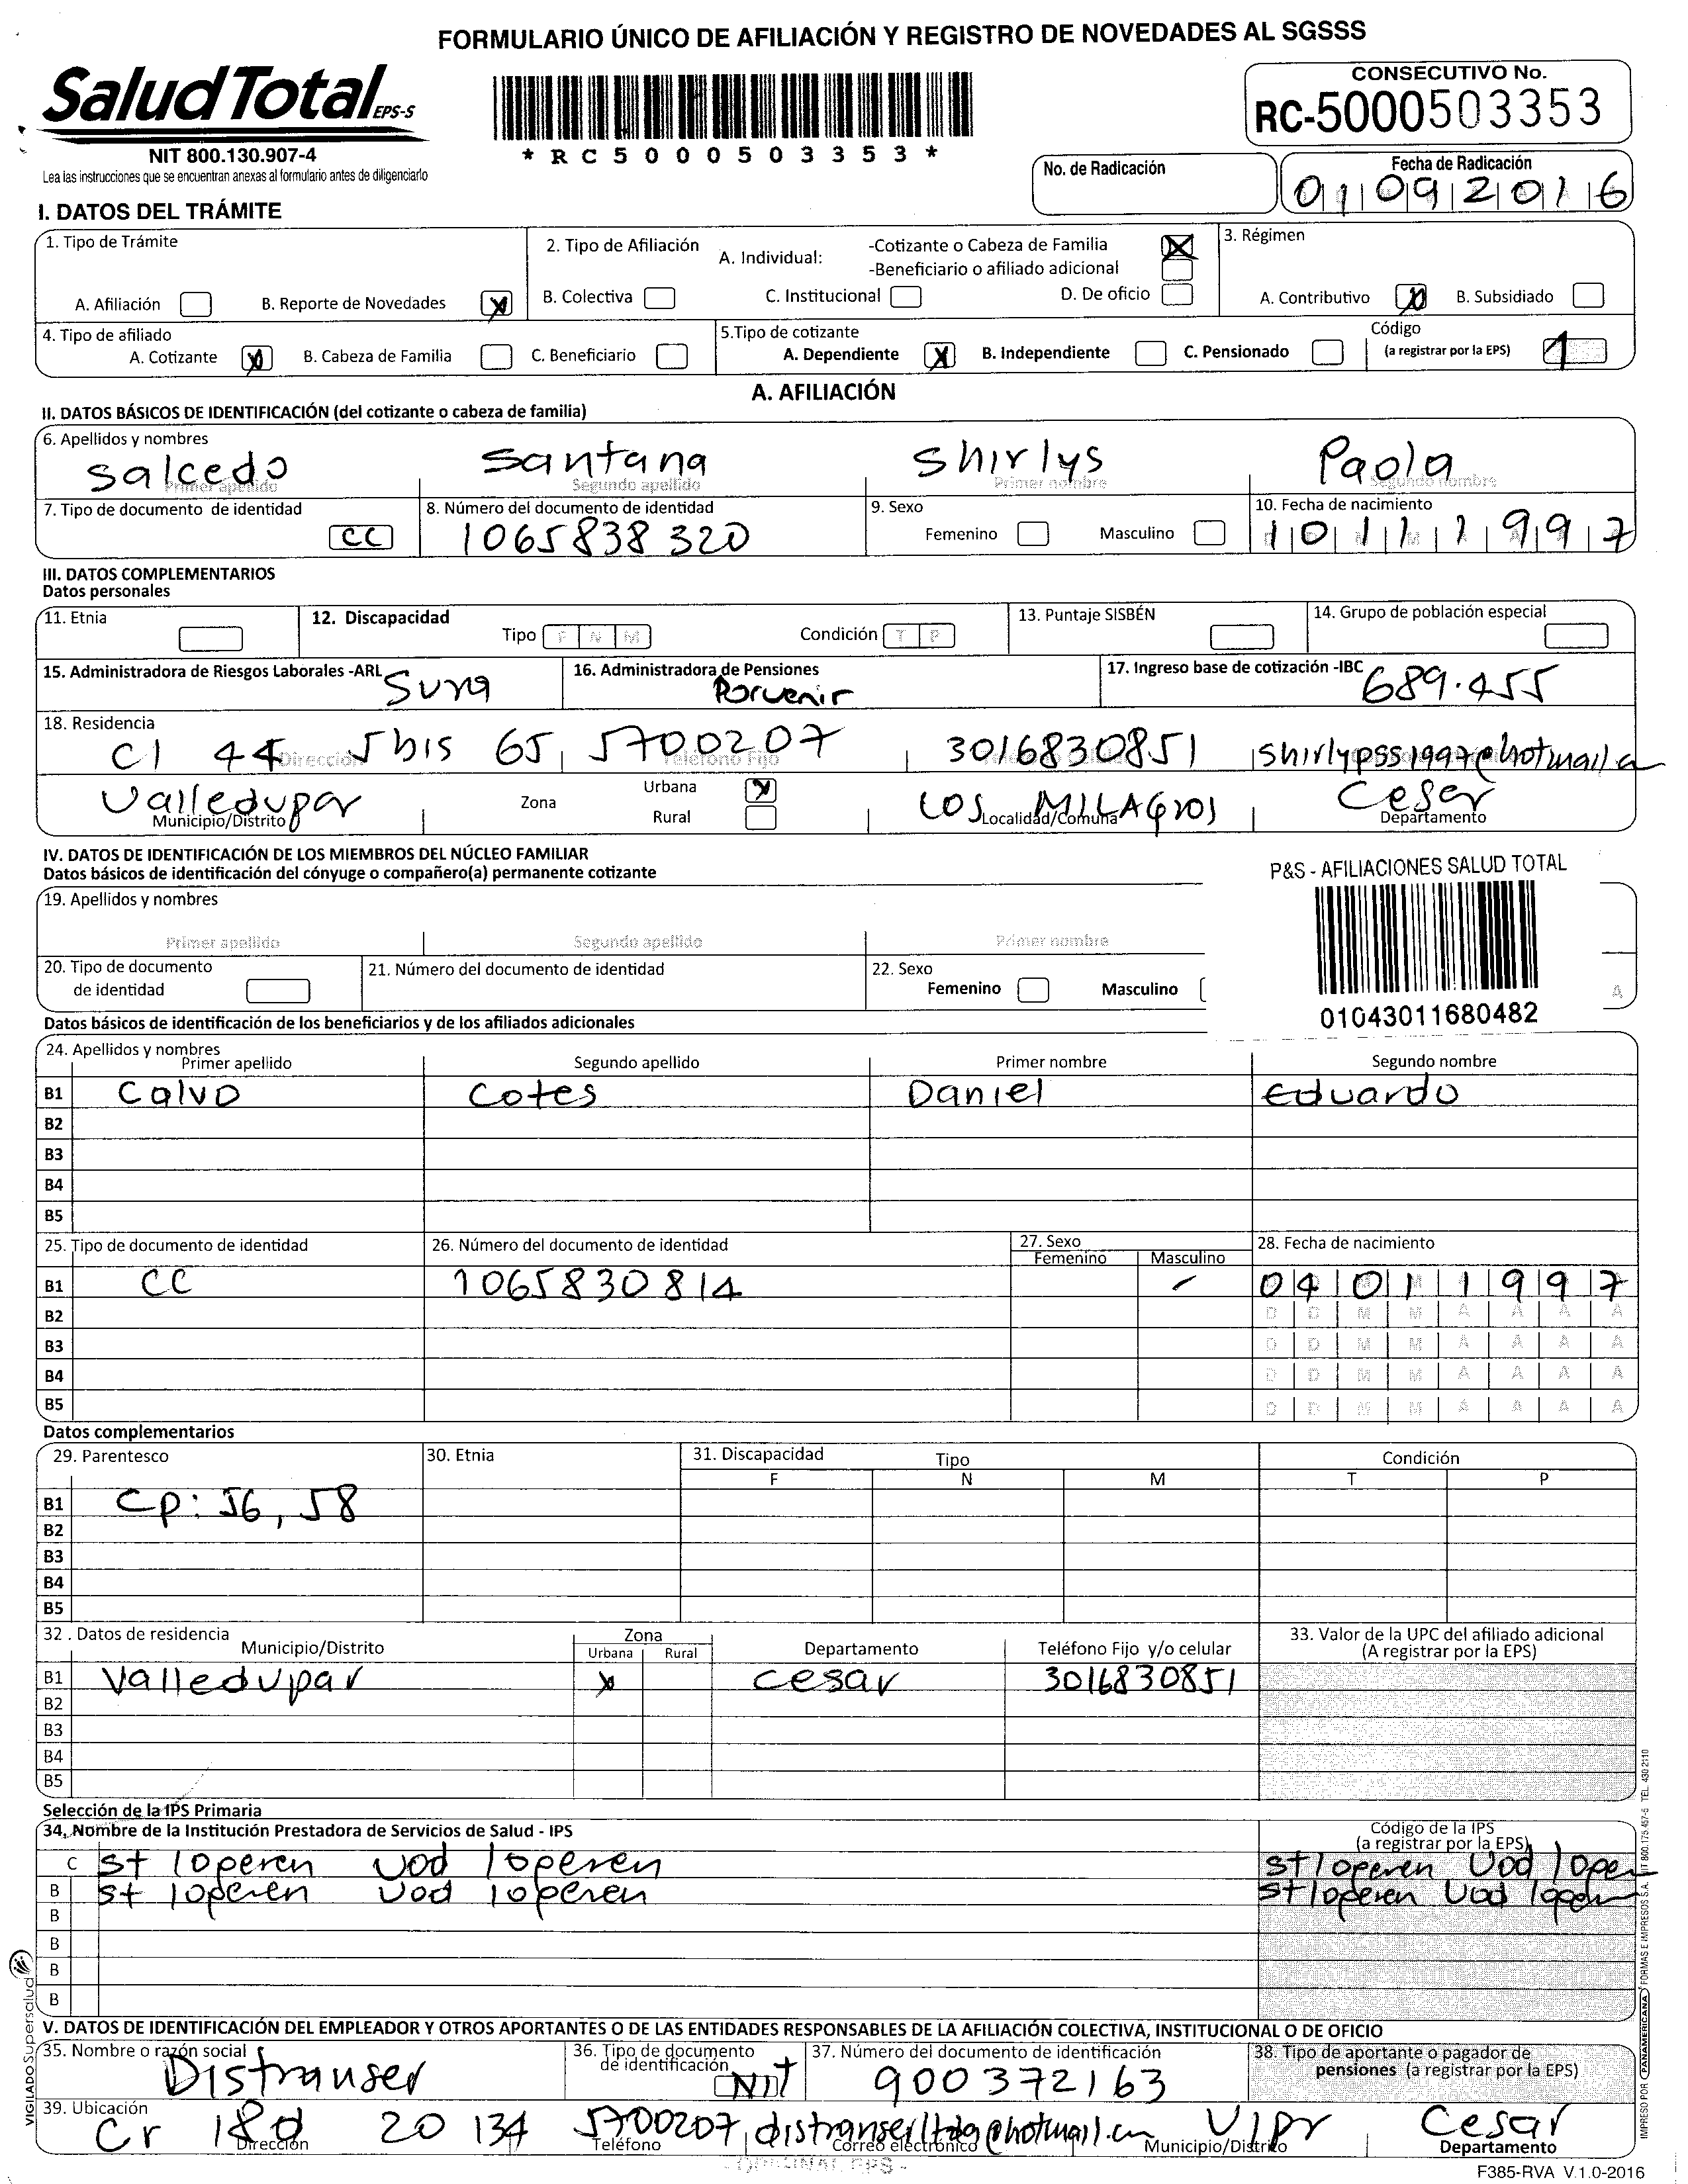 FORMULARIO ÚNICO DE AFILIACIÓN Y REGISTRO DE NOVEDADES AL SGSSS
Salud Total EPS-S
NIT 800.130.907-4
Lea las instrucciones que se encuentran anexas al formulario antes de diligenciarlo
*RC5000503353*
CONSECUTIVO No.
RC-5000503353
No. de Radicación
Fecha de Radicación
01092016
I. DATOS DEL TRÁMITE
1. Tipo de Trámite
A. Afiliación B. Reporte de Novedades X
2. Tipo de Afiliación A. Individual: -Cotizante o Cabeza de Familia X
-Beneficiario o afiliado adicional
B. Colectiva C. Institucional D. De oficio
3. Régimen
A. Contributivo X B. Subsidiado
4. Tipo de afiliado
A. Cotizante X B. Cabeza de Familia C. Beneficiario
5.Tipo de cotizante
A. Dependiente X B. Independiente C. Pensionado
Código
(a registrar por la EPS) 1
A. AFILIACIÓN
II. DATOS BÁSICOS DE IDENTIFICACIÓN (del cotizante o cabeza de familia)
6. Apellidos y nombres
Salcedo Santana Shirlys Paola
Primer apellido Segundo apellido Primer nombre Segundo nombre
7. Tipo de documento de identidad CC
8. Número del documento de identidad
1065838320
9. Sexo
Femenino Masculino
10. Fecha de nacimiento
10111997
III. DATOS COMPLEMENTARIOS
Datos personales
11. Etnia
12. Discapacidad Tipo F N M Condición T P
13. Puntaje SISBÉN
14. Grupo de población especial
15. Administradora de Riesgos Laborales -ARL Sura
16. Administradora de Pensiones
Porvenir
17. Ingreso base de cotización -IBC 689.455
18. Residencia
Cl 44 5bis 65 5700207 3016830851 Shirlypss1997@hotmail.c
Dirección Teléfono Fijo
Valledupar Zona Urbana X Rural Los MILAGros Cesar
Municipio/Distrito Localidad/Comuna Departamento
IV. DATOS DE IDENTIFICACIÓN DE LOS MIEMBROS DEL NÚCLEO FAMILIAR
Datos básicos de identificación del cónyuge o compañero(a) permanente cotizante
P&S - AFILIACIONES SALUD TOTAL
01043011680482
19. Apellidos y nombres
Primer apellido Segundo apellido Primer nombre
20. Tipo de documento de identidad
21. Número del documento de identidad
22. Sexo
Femenino Masculino
A
Datos básicos de identificación de los beneficiarios y de los afiliados adicionales
24. Apellidos y nombres
Primer apellido Segundo apellido Primer nombre Segundo nombre
B1 Calvo Cotes Daniel Eduardo
B2
B3
B4
B5
25. Tipo de documento de identidad 26. Número del documento de identidad 27. Sexo 28. Fecha de nacimiento
Femenino Masculino
B1 CC 1065830814 04011997
B2 D D M M A A A A
B3 D D M M A A A A
B4 D D M M A A A A
B5 D D M M A A A A
Datos complementarios
29. Parentesco 30. Etnia 31. Discapacidad Tipo Condición
F N M T P
B1 Cp: 56, 58
B2
B3
B4
B5
32 . Datos de residencia
Municipio/Distrito Zona Departamento Teléfono Fijo y/o celular
Urbana Rural
33. Valor de la UPC del afiliado adicional
(A registrar por la EPS)
B1 Valledupar X Cesar 3016830851
B2
B3
B4
B5
Selección de la IPS Primaria
34. Nombre de la Institución Prestadora de Servicios de Salud - IPS
Código de la IPS
(a registrar por la EPS)
C St loperen Uod loperen St loperen Uod loper
B St loperen Uod loperen St loperen Uod
B
B
B
B
V. DATOS DE IDENTIFICACIÓN DEL EMPLEADOR Y OTROS APORTANTES O DE LAS ENTIDADES RESPONSABLES DE LA AFILIACIÓN COLECTIVA, INSTITUCIONAL O DE OFICIO
35. Nombre o razón social
Distranser
36. Tipo de documento de identificación
NIT
37. Número del documento de identificación
900372163
38. Tipo de aportante o pagador de pensiones (a registrar por la EPS)
39. Ubicación
Cr 18d 20 134 5700207 distranserltda@hotmail.cm Vlpr Cesar
Dirección Teléfono Correo electrónico Municipio/Distrito Departamento
- ORIGINAL EPS -
F385-RVA V.1.0-2016
VIGILADO Supersalud
IMPRESO POR PANAMERICANA FORMAS E IMPRESOS S.A. NIT 800.175.457-5 TEL. 430 2110